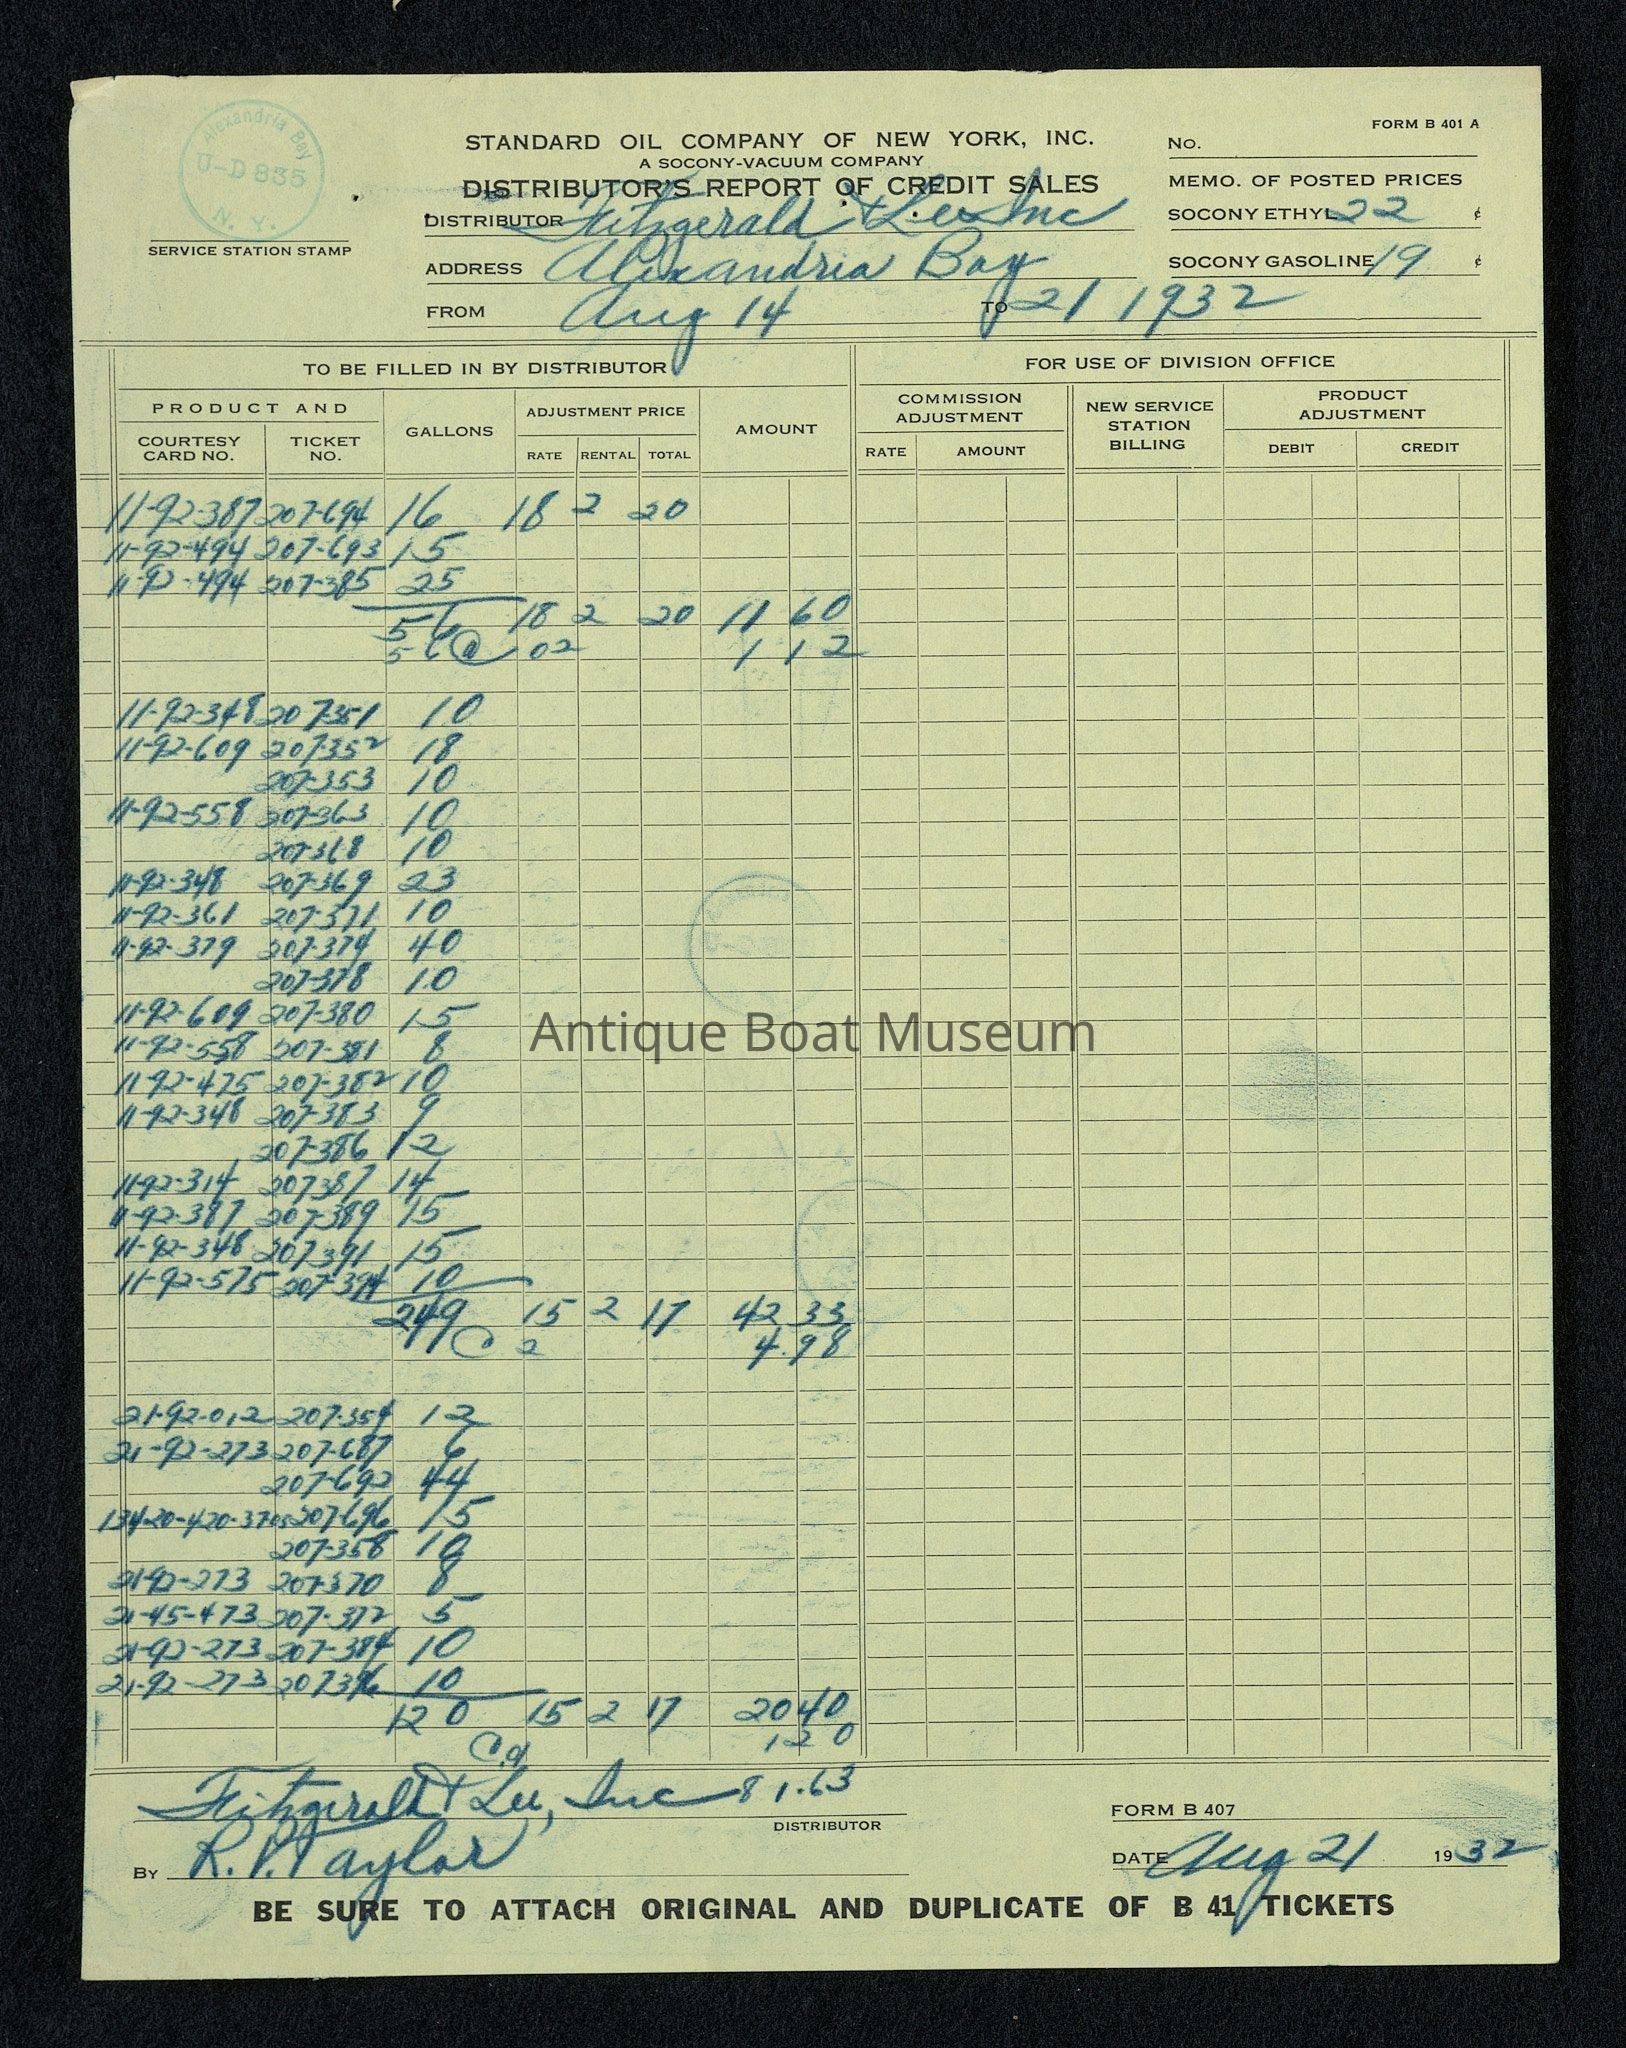 FORM B 401 A
Alexandria Bay
U-D 835
N. Y.
SERVICE STATION STAMP
STANDARD OIL COMPANY OF NEW YORK, INC.
A SOCONY-VACUUM COMPANY
DISTRIBUTOR'S REPORT OF CREDIT SALES
No.
MEMO. OF POSTED PRICES
DISTRIBUTOR Fitzgerald & Lee Inc
SOCONY ETHYL 22 ¢
ADDRESS Alexandria Bay
SOCONY GASOLINE 19 ¢
FROM Aug 14 TO 21 1932
TO BE FILLED IN BY DISTRIBUTOR
FOR USE OF DIVISION OFFICE
PRODUCT AND
COURTESY CARD NO.
TICKET NO.
GALLONS
ADJUSTMENT PRICE
RATE RENTAL TOTAL
AMOUNT
COMMISSION ADJUSTMENT
RATE AMOUNT
NEW SERVICE STATION BILLING
PRODUCT ADJUSTMENT
DEBIT CREDIT
11-92-387 207-694 16 18 2 20
11-92-494 207-693 15
11-92-494 207-385 25
56 18 2 20 11 60
56 @ 02 1 12
11-92-348 207-351 10
11-92-609 207-352 18
207-353 10
11-92-558 207-363 10
207-368 10
11-92-348 207-369 23
11-92-361 207-371 10
11-92-379 207-374 40
207-378 10
11-92-609 207-380 15
11-92-558 207-381 8
11-92-475 207-382 10
11-92-348 207-383 9
207-386 12
11-92-314 207-387 14
11-92-387 207-389 15
11-92-348 207-391 15
11-92-575 207-394 10
249 15 2 17 42 33
@ 2 4.98
21-92-012 207-354 12
21-92-273 207-687 6
207-692 44
207-696 15
207-358 10
21-92-273 207-370 8
21-45-473 207-372 5
21-92-273 207-384 10
21-92-273 207-396 10
120 15 2 17 20 40
1 20
Fitzgerald & Lee, Inc 81.63
DISTRIBUTOR
FORM B 407
By R. P. Taylor
DATE Aug 21 1932
BE SURE TO ATTACH ORIGINAL AND DUPLICATE OF B 41 TICKETS
Antique Boat Museum